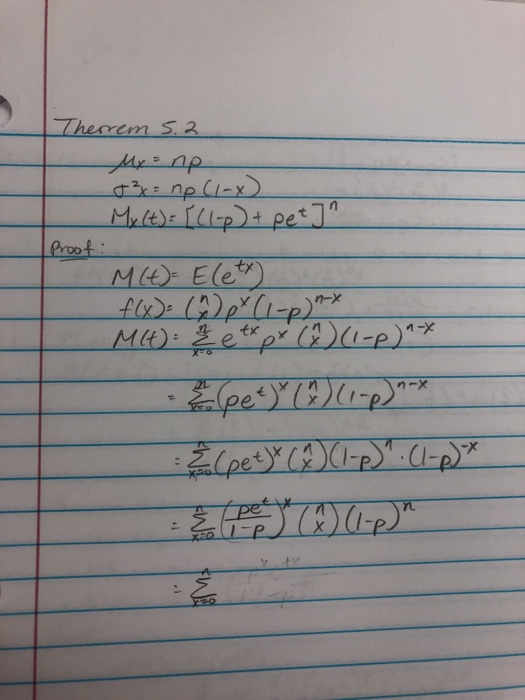 Theorem 5.2
μx = np
σ²x = np(1-x)
Mx(t) = [(1-p) + pe^t]^n
Proof:
M(t) = E(e^tx)
f(x) = (n x) p^x (1-p)^n-x
M(t) = Σ x=0 n e^tx p^x (n x) (1-p)^n-x
= Σ x=0 n (pe^t)^x (n x) (1-p)^n-x
= Σ x=0 n (pe^t)^x (n x) (1-p)^n · (1-p)^-x
= Σ x=0 n (pe^t / 1-p)^x (n x) (1-p)^n
= Σ x=0 n